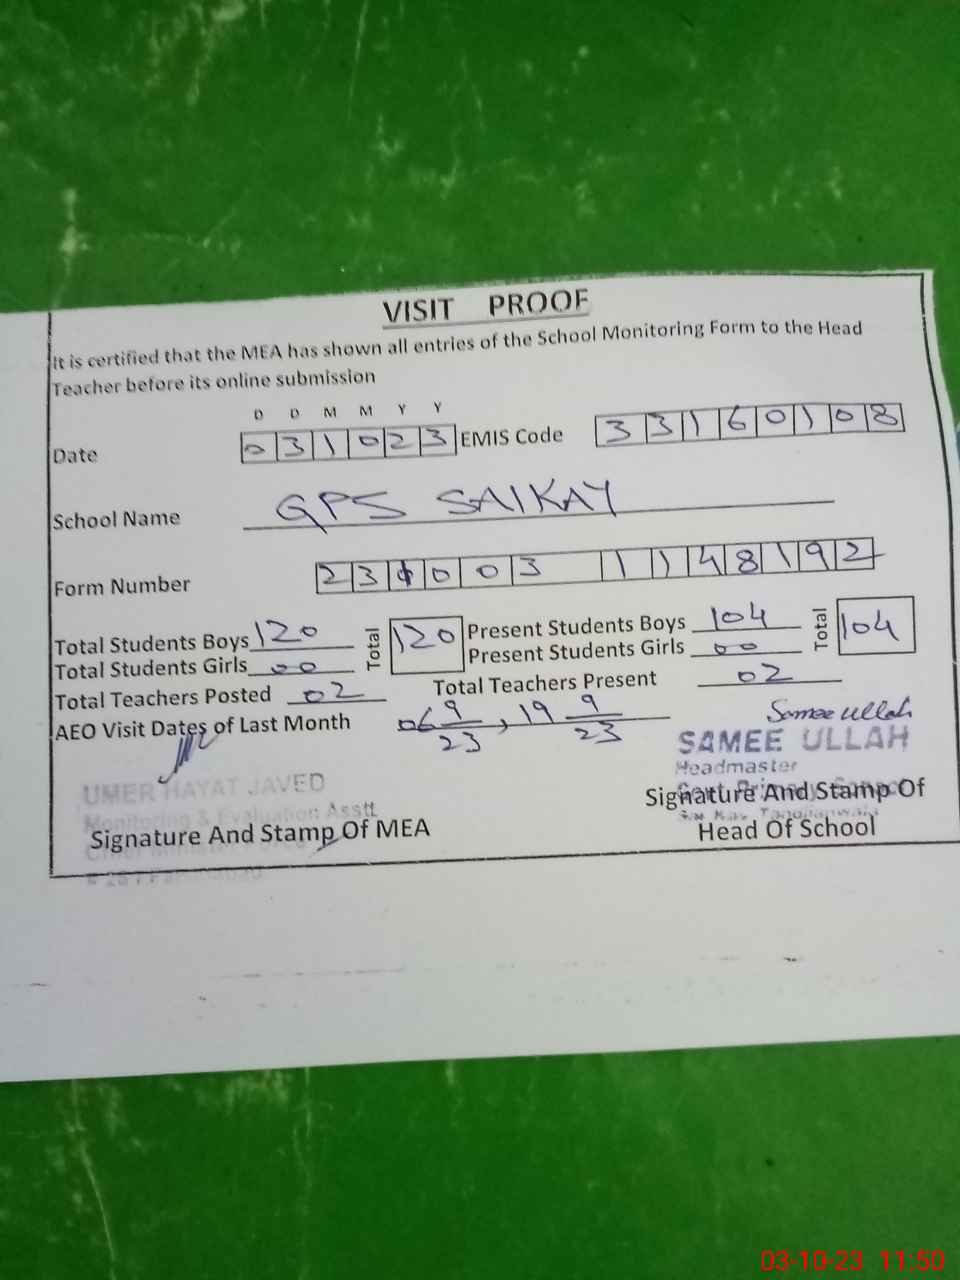 VISIT PROOF
It is certified that the MEA has shown all entries of the School Monitoring Form to the Head
Teacher before its online submission
D D M M Y Y
Date 0 3 1 0 2 3 EMIS Code 3 3 1 6 0 1 0 8
School Name GPS SAIKAY
Form Number 2 3 0 0 3 1 1 4 8 1 9 2
Total Students Boys 120 Total 120 Present Students Boys 104 Total 104
Total Students Girls 00 Present Students Girls 00
Total Teachers Posted 02 Total Teachers Present 02
AEO Visit Dates of Last Month 06 9/23, 19 9/23
Samee ullah
SAMEE ULLAH
Headmaster
Govt Primary
UMER HAYAT JAVED
Monitoring & Evaluation Asstt
Signature And Stamp Of MEA
Signature And Stamp Of
Head Of School
03-10-23 11:50